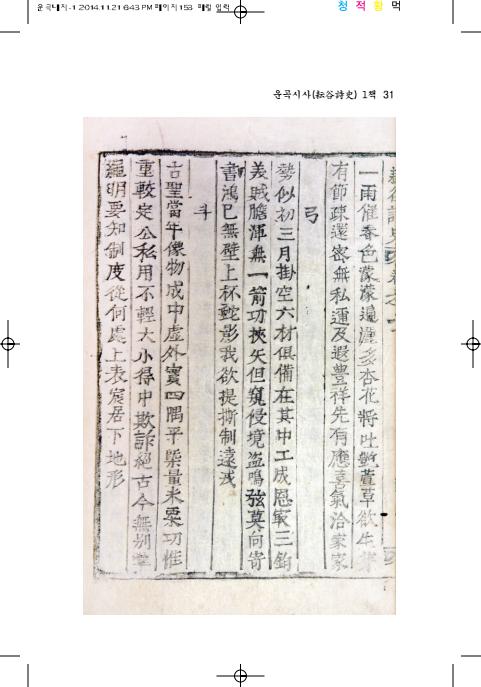 운곡대지-1 2014.11.21 6:43 PM 페이지153 매킨 입력
청 적 황 먹
운곡시사(耘谷詩史) 1책 31
一雨催春色濛濛遍灑多杏花將吐艶萱草欲生
有節疎還密無私邇及遐豊祥先有應喜氣洽家家
弓
勢似初三月掛空六材俱備在其中工成恩寵三鈞
美賊膽渾無一箭功挾矢但窺侵境盜鳴弦莫向寄
書鴻已無壁上杯蛇影我欲提撕制遠戎
斗
古聖當年像物成中虛外實四隅平槩量米粟功惟
重較定公私用不輕大小得中欺訴絕古今無別
繩明要知制度從何處上表宸居下地形